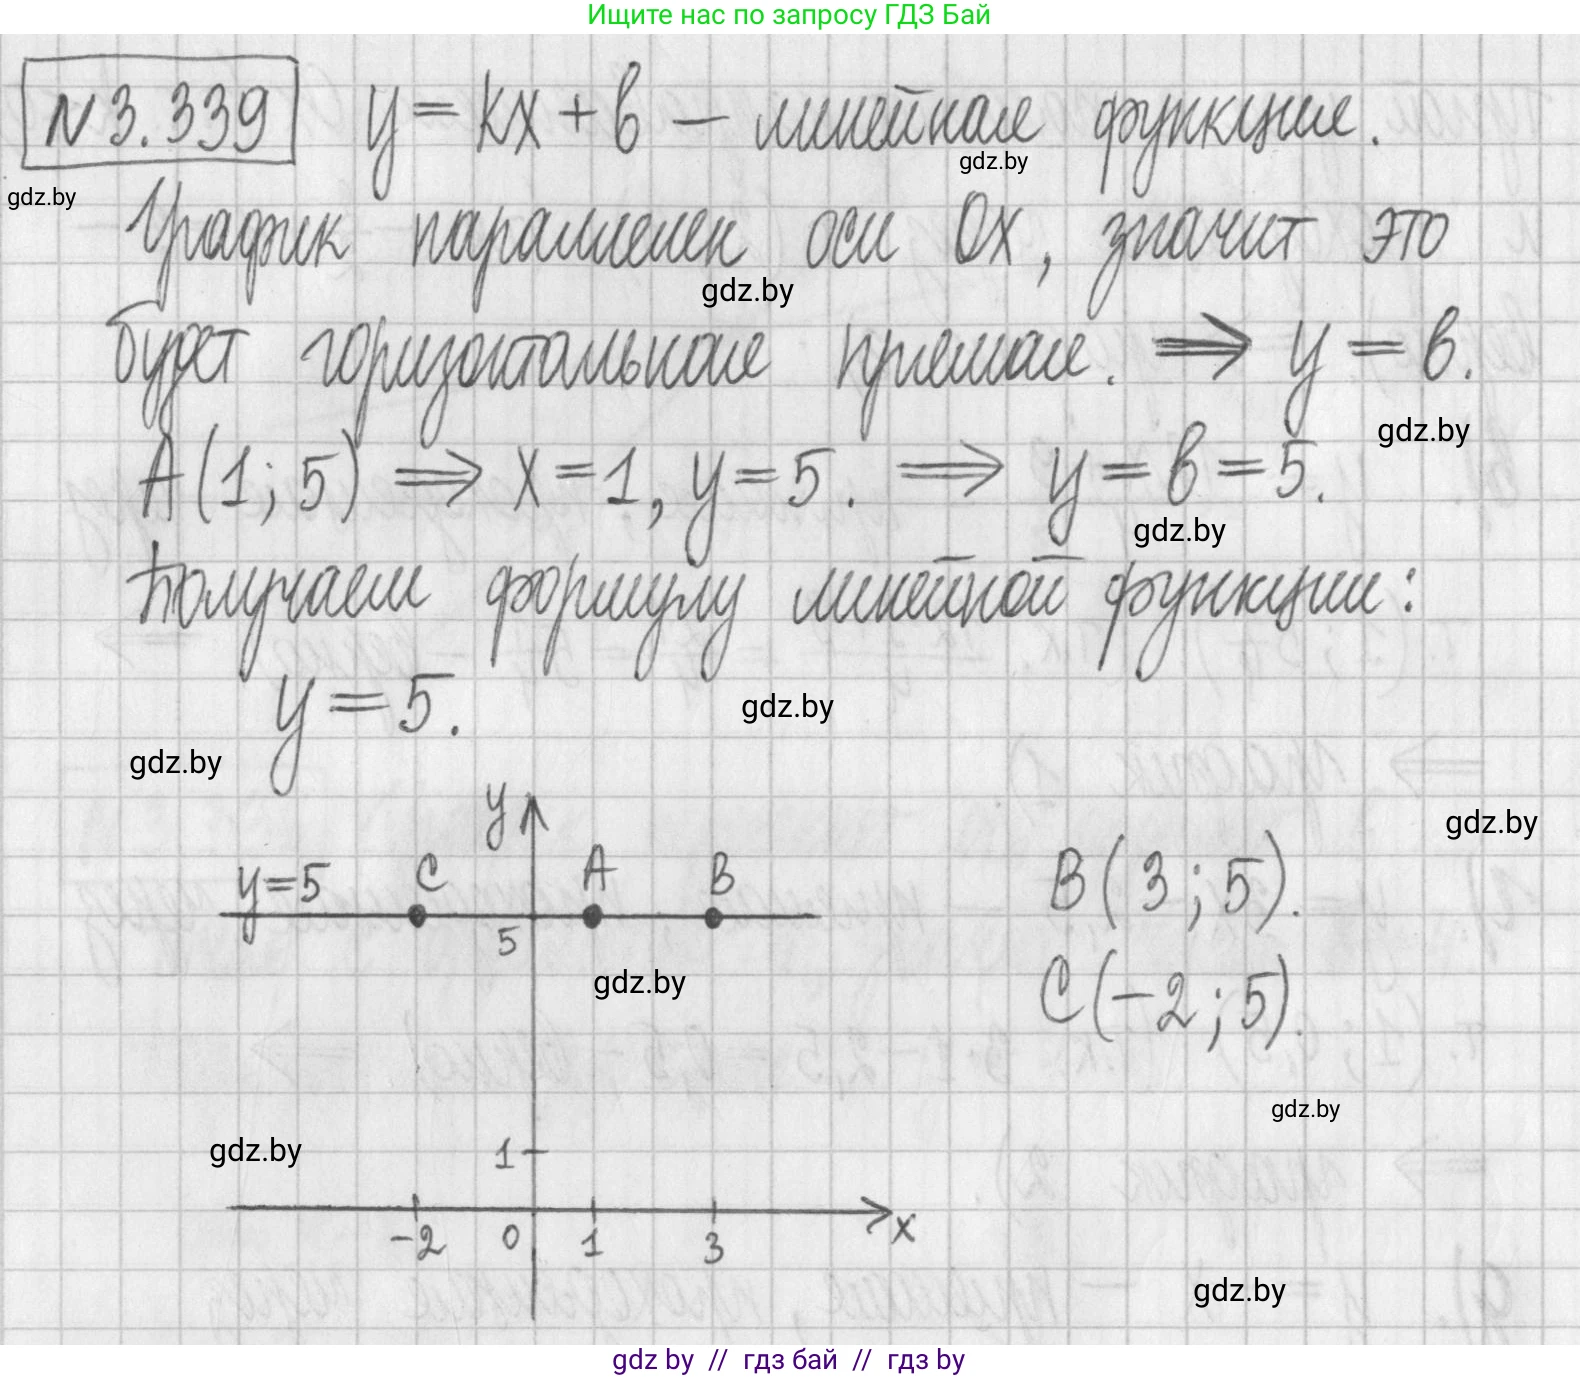 Ищите нас по запросу ГДЗ Бай
N 3.339 y = kx + b – линейная функция.
gdz.by
gdz.by
График параллелен оси Ox, значит это
gdz.by
будет горизонтальная прямая. ⟹ y = b.
gdz.by
A(1; 5) ⟹ x = 1, y = 5. ⟹ y = b = 5.
gdz.by
Получаем формулу линейной функции:
y = 5.
gdz.by
gdz.by
y
gdz.by
y=5 C A B
B(3; 5).
5
gdz.by
C(-2; 5).
gdz.by
1
gdz.by
-2 0 1 3 x
gdz.by
gdz by // гдз бай // гдз by